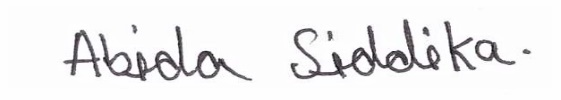 Abida Siddika.